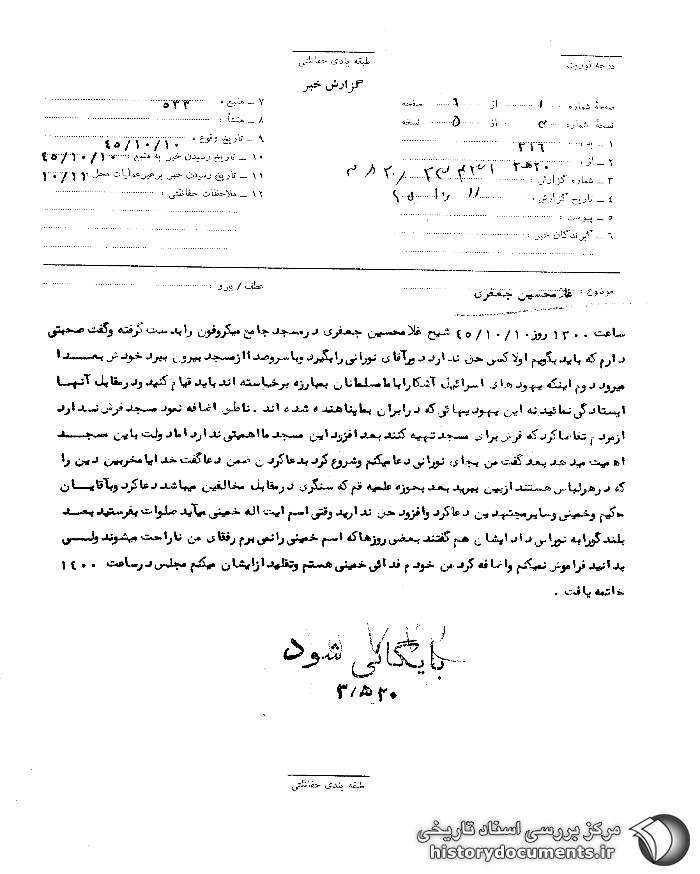 طبقه بندی حفاظتی
درجه فوریت
گزارش خبر
صفحهٔ شماره ۱ از ۱ صفحه
نسخهٔ شماره ۳ از ۵ نسخه
۱ – به : ۳۱۶
۲ – از : ۲۰ ه ۳
۳ – شمارهٔ گزارش :
۴ – تاریخ گزارش :
۵ – پیوست :
۶ – گیرندگان خبر :
۷ – منبع : ۵۳۳
۸ – منشأ :
۹ – تاریخ وقوع : ۴۵/۱۰/۱۰
۱۰ – تاریخ رسیدن خبر به منبع : ۴۵/۱۰/۱۰
۱۱ – تاریخ رسیدن خبر به رهبر عملیات محل
۱۲ – ملاحظات حفاظتی :
موضوع : غلامحسین جعفری
عطف / پیرو :
ساعت ۱۳۰۰ روز ۴۵/۱۰/۱۰ شیخ غلامحسین جعفری در مسجد جامع میکروفون را بدست گرفته و گفت صحبتی
دارم که باید بگویم اولا کسی حق ندارد دور آقای نورانی را بگیرد و با سر و صدا از مسجد بیرون ببرد خودش بعدا
میرود دوم اینکه یهود های اسرائیل آشکارا با ما مسلمانان بمبارزه برخیاسته اند باید قیام کنید و در مقابل آنها
ایستادگی نمائید نه این یهودیهائی که در ایران بما پناهنده شده اند . ناطق اضافه نمود مسجد فرش ندارد
از مردم تقاضا کرد که فرش برای مسجد تهیه کنند بعد افزود این مسجد ما اهمیتی ندارد اما دولت باین مسجد
اهمیت میدهد بعد گفت من بجای نورانی دعا میکنم و شروع کرد بدعا کردن ضمن دعا گفت خدایا مخربین دین را
که در هر لباس هستند از بین ببرید بعد بحوزه علمیه قم که سنگری در مقابل مخالفین میباشد دعا کرد و بآقایان
حکیم و خمینی و سایر مجتهدین دعا کرد و افزود حق ندارید وقتی اسم ایت اله خمینی میآید صلوات بفرستید بعد
بلندگو را به نوراس داد ایشان هم گفتند بعضی روزها که اسم خمینی را نمی برم رفقای من ناراحت میشوند ولی
بدانید فراموش نمیکنم و اضافه کرد من خودم فدائی خمینی هستم و تقلید از ایشان میکنم مجلس در ساعت ۱۴۰۰
خاتمه یافت .
بایگانی شود
۲۰ ه ۳
طبقه بندی حفاظتی
مرکز بررسی اسناد تاریخی
historydocuments.ir